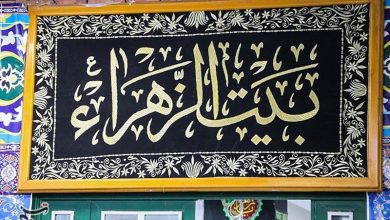 بیت الزَّهراء ع